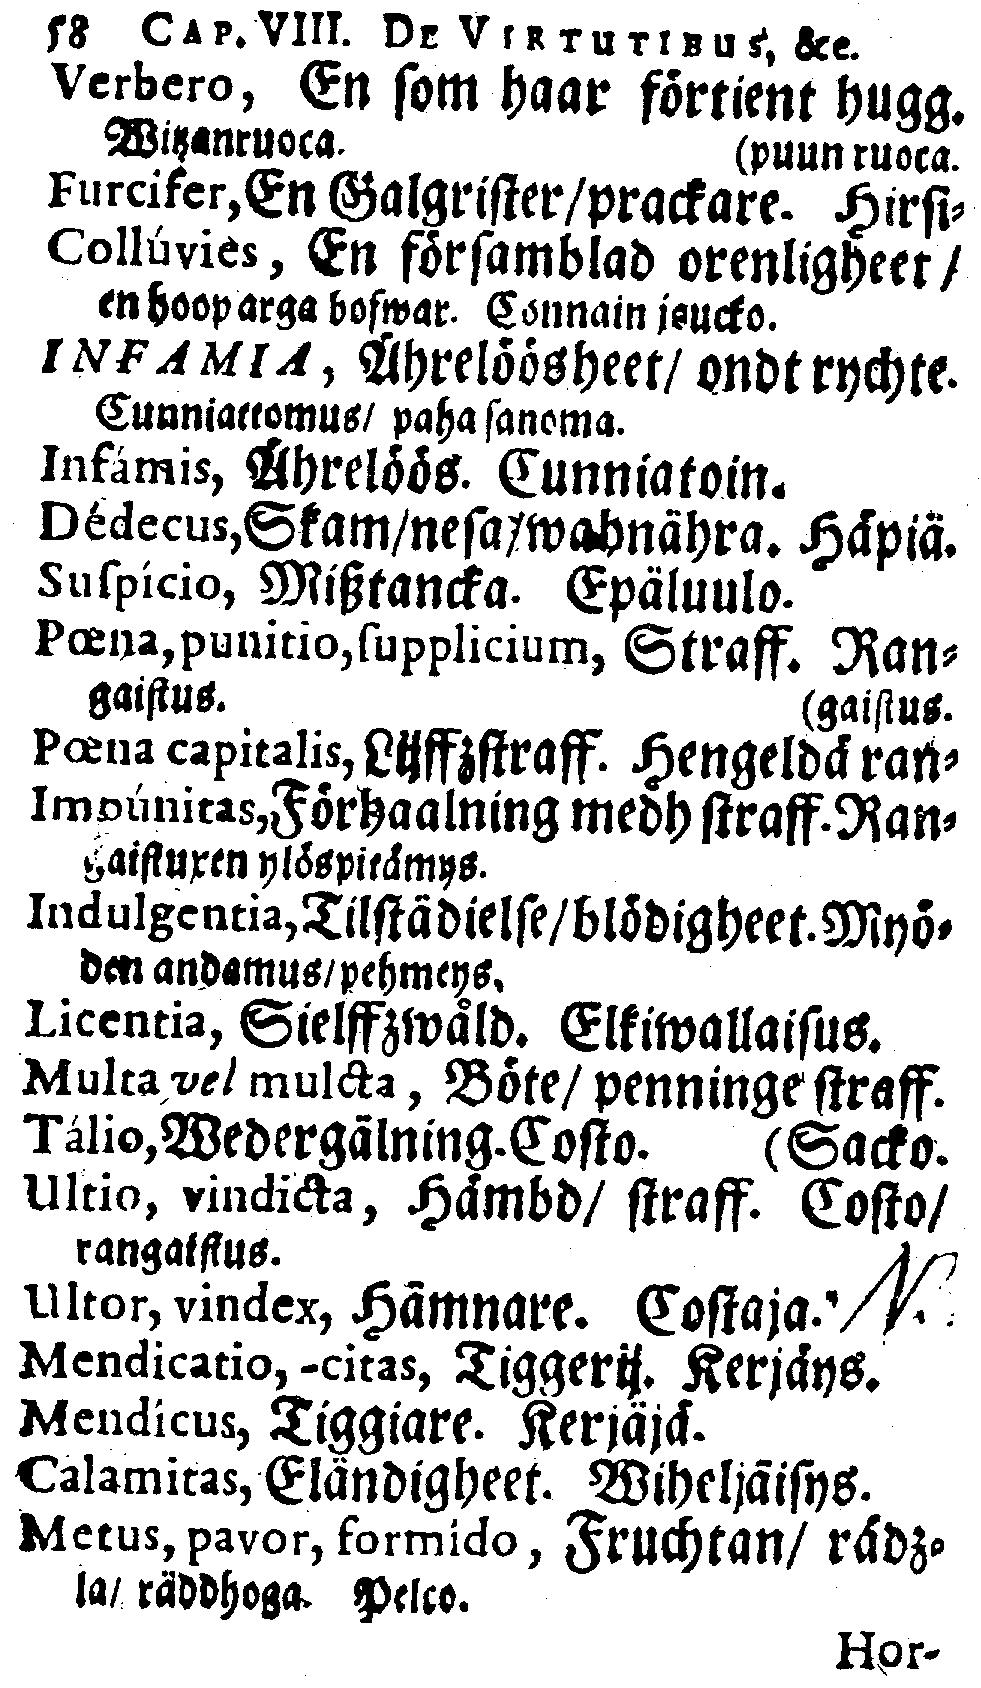 58 CAP. VIII. DE VIRTUTIBUS, &c.
Verbero, En ſom haar förtient hugg.
Witzanruoca. (puun ruoca.
Furcifer, En Galgriſter/prackare. Hirſi-
Collúvies, En förſamblad orenligheet/
en hoop arga bofwar. Connain joucko.
INFAMIA, Ährelöösheet/ ondt rychte.
Cunniattomus/ paha ſanoma.
Infámis, Ährelöös. Cunniatoin.
Dédecus, Skam/neſa/wahnähra. Häpiä.
Suſpício, Mißtancka. Epäluulo.
Pœna, punitio, ſupplicium, Straff. Ran-
gaiſtus. (gaiſtus.
Pœna capitalis, Lijffzſtraff. Hengeldä ran-
Impúnitas, Förhaalning medh ſtraff. Ran-
gaiſtuxen ylöspitämys.
Indulgentia, Tilſtädielſe/blödigheet. Myö-
den andamus/pehmeys.
Licentia, Sielffzwåld. Elkiwallaiſus.
Multa vel mulcta, Böte/ penninge ſtraff.
Tálio, Wedergälning. Coſto. (Sacko.
Ultio, vindicta, Hämbd/ ſtraff. Coſto/
rangaiſtus.
Ultor, vindex, Hämnare. Coſtaja. N.
Mendicatio, -citas, Tiggerij. Kerjäys.
Mendícus, Tiggiare. Kerjäjä.
Calamitas, Eländigheet. Wiheljäiſys.
Metus, pavor, formído, Fruchtan/ rädz-
la/ räddhoga. Pelco.
Hor-